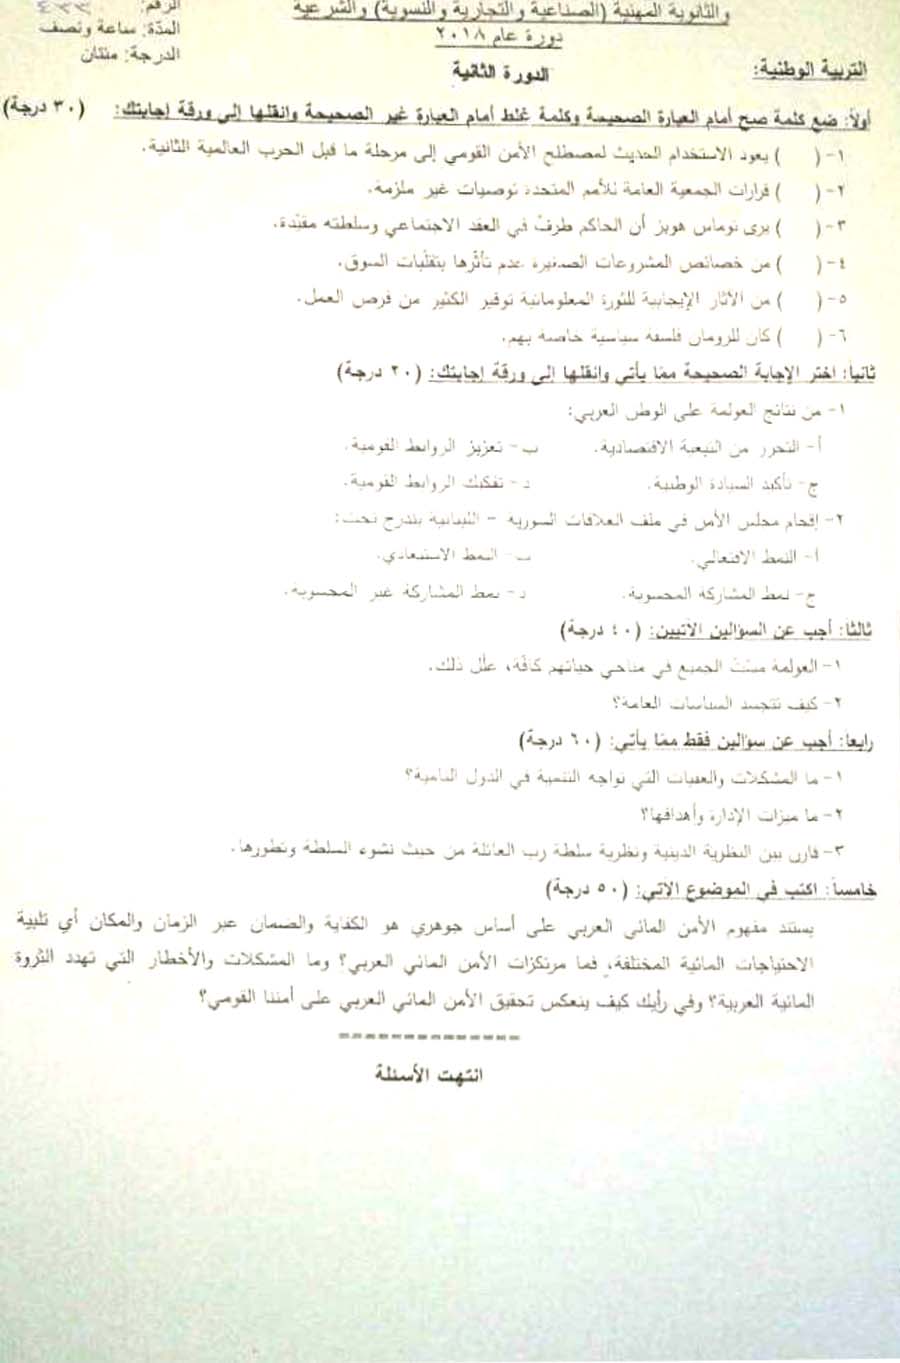 والثانوية المهنية (الصناعية والتجارية والنسوية) والشرعية
الرقم:
دورة عام ٢٠١٨
المدّة: ساعة ونصف
التربية الوطنية:
الدورة الثانية
الدرجة: مئتان
أولاً: ضع كلمة صح أمام العبارة الصحيحة وكلمة غلط أمام العبارة غير الصحيحة وانقلها إلى ورقة إجابتك: (٣٠ درجة)
١- (    ) يعود الاستخدام الحديث لمصطلح الأمن القومي إلى مرحلة ما قبل الحرب العالمية الثانية.
٢- (    ) قرارات الجمعية العامة للأمم المتحدة توصيات غير ملزمة.
٣- (    ) يرى توماس هوبز أن الحاكم طرفٌ في العقد الاجتماعي وسلطته مقيّدة.
٤- (    ) من خصائص المشروعات الصغيرة عدم تأثّرها بتقلّبات السوق.
٥- (    ) من الآثار الإيجابية للثورة المعلوماتية توفير الكثير من فرص العمل.
٦- (    ) كان للرومان فلسفة سياسية خاصة بهم.
ثانياً: اختر الإجابة الصحيحة ممّا يأتي وانقلها إلى ورقة إجابتك: (٢٠ درجة)
١- من نتائج العولمة على الوطن العربي:
أ- التحرر من التبعية الاقتصادية. ب- تعزيز الروابط القومية.
ج- تأكيد السيادة الوطنية. د- تفكيك الروابط القومية.
٢- إقحام مجلس الأمن في ملف العلاقات السورية - اللبنانية يندرج تحت:
أ- النمط الافتعالي. ب- النمط الاستبعادي.
ج- نمط المشاركة المحسوبة. د- نمط المشاركة غير المحسوبة.
ثالثاً: أجب عن السؤالين الآتيين: (٤٠ درجة)
١- العولمة مسّت الجميع في مناحي حياتهم كافّة، علّل ذلك.
٢- كيف تتجسد السياسات العامة؟
رابعاً: أجب عن سؤالين فقط ممّا يأتي: (٦٠ درجة)
١- ما المشكلات والعقبات التي تواجه التنمية في الدول النامية؟
٢- ما ميزات الإدارة وأهدافها؟
٣- قارن بين النظرية الدينية ونظرية سلطة رب العائلة من حيث نشوء السلطة وتطورها.
خامساً: اكتب في الموضوع الآتي: (٥٠ درجة)
يستند مفهوم الأمن المائي العربي على أساس جوهري هو الكفاية والضمان عبر الزمان والمكان أي تلبية
الاحتياجات المائية المختلفة، فما مرتكزات الأمن المائي العربي؟ وما المشكلات والأخطار التي تهدد الثروة
المائية العربية؟ وفي رأيك كيف ينعكس تحقيق الأمن المائي العربي على أمننا القومي؟
انتهت الأسئلة